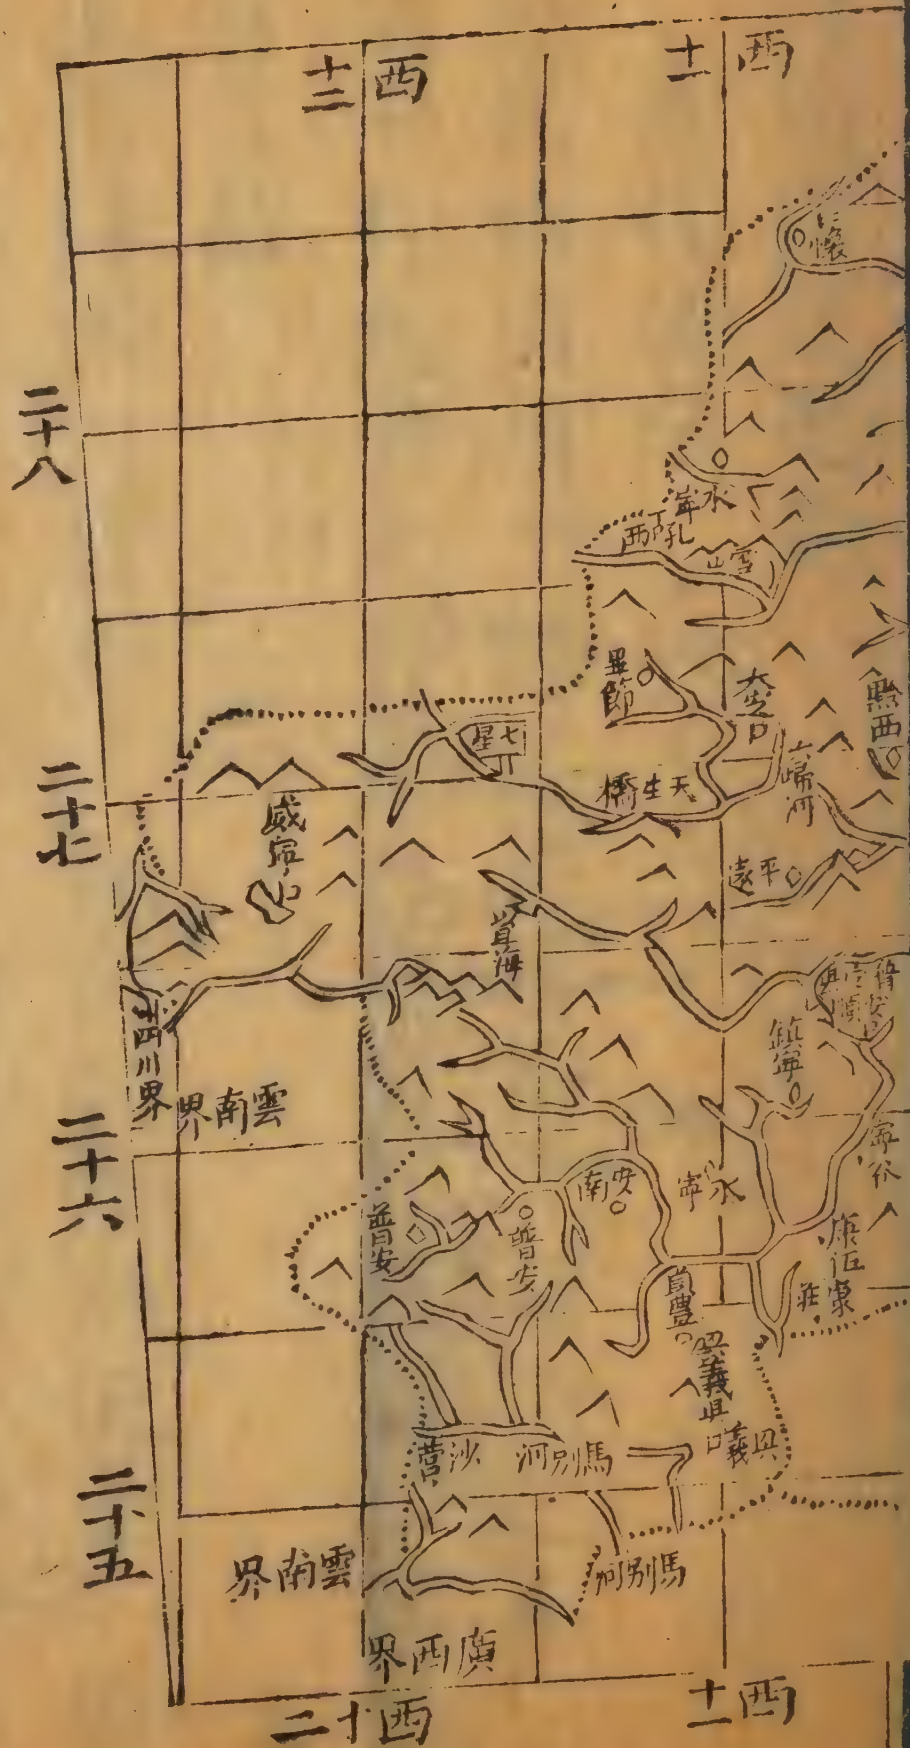 西十一
西十二
二十八
二十七
二十六
二十五
懷
水
西
雪山
畢節
大定
黔西
七星
天生橋
歸河
威寧
平遠
海
鎮寧
四川界
雲南界
寧谷
安南
永寧
普安
普安
貞豐
康佐
興義縣
興義
沙營
馬別河
馬別河
雲南界
廣西界
西十二
西十一